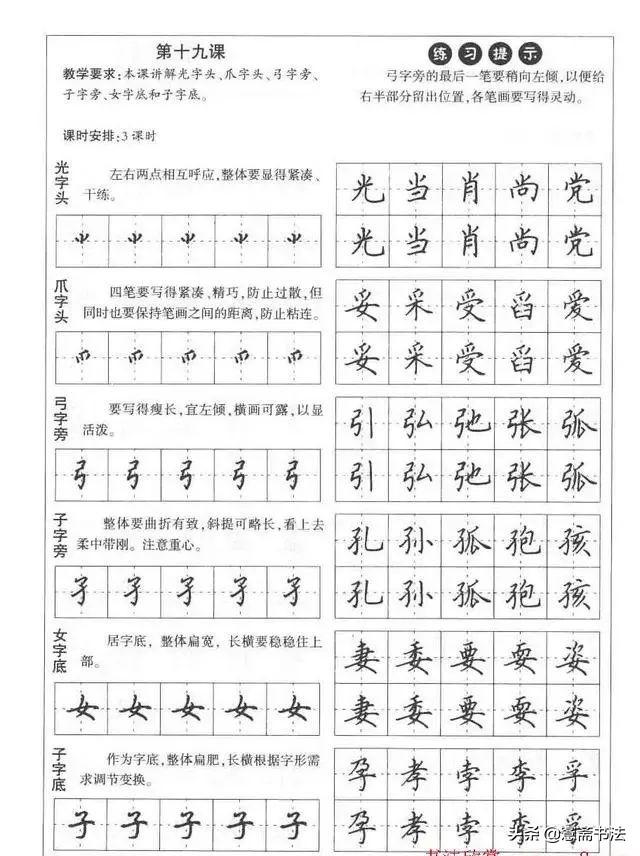 第十九课
教学要求:本课讲解光字头、爪字头、弓字旁、
子字旁、女字底和子字底。
课时安排:3课时
练习提示
弓字旁的最后一笔要稍向左倾,以便给
右半部分留出位置,各笔画要写得灵动。
光字头
左右两点相互呼应,整体要显得紧凑、
干练。
⺌ ⺌ ⺌ ⺌ ⺌
光 当 肖 尚 党
光 当 肖 尚 党
爪字头
四笔要写得紧凑、精巧,防止过散,但
同时也要保持笔画之间的距离,防止粘连。
爫 爫 爫 爫 爫
妥 采 受 舀 爱
妥 采 受 舀 爱
弓字旁
要写得瘦长,宜左倾,横画可露,以显
活泼。
弓 弓 弓 弓 弓
引 弘 弛 张 弧
引 弘 弛 张 弧
子字旁
整体要曲折有致,斜提可略长,看上去
柔中带刚。注意重心。
子 子 子 子 子
孔 孙 孤 孢 孩
孔 孙 孤 孢 孩
女字底
居字底,整体扁宽,长横要稳稳住上
部。
女 女 女 女 女
妻 委 要 耍 姿
妻 委 要 耍 姿
子字底
作为字底,整体扁肥,长横根据字形需
求调节变换。
子 子 子 子 子
孕 孝 孛 李 孚
孕 孝 孛 李 孚
头条 @斋书法